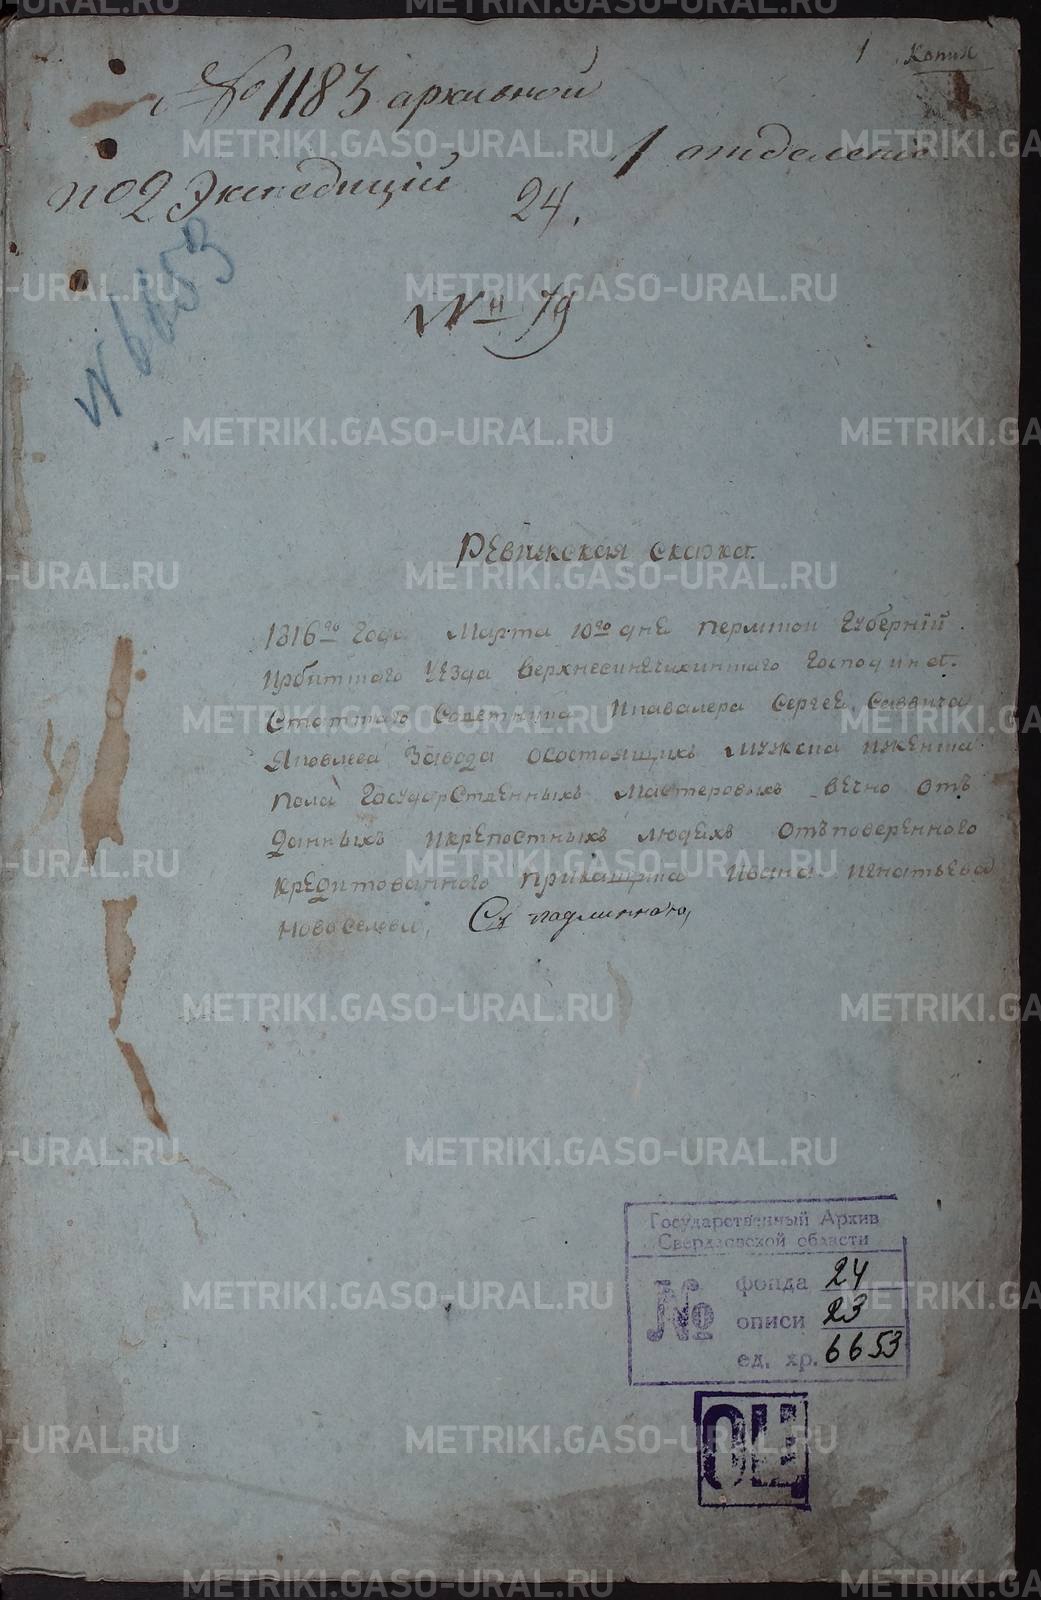 1 Копия
№ 1183 архивной
по 2 Экспедиции 1 отделение
24.
№ 6653
№ 79
Ревижская сказка.
1816го года Марта 10го дня Пермшой Губернiи.
Ирбитшаго Уезда Верхнесинячихиншаго Господина.
Статшаго Советника Икавалера Сергея Саввича
Яковлева Завода осостоящихъ мужска иженска
пола Государственныхъ Мастеровыхъ вечно отъ
данныхъ икрепостныхъ людехъ отъповеренного
кредитованного прикащика Ивана Игнатьева
Новоселова, Съ подлинного,
Государственный Архив
Свердловской области
№ фонда 24
описи 23
ед. хр. 6653
ОЦ
METRIKI.GASO-URAL.RU